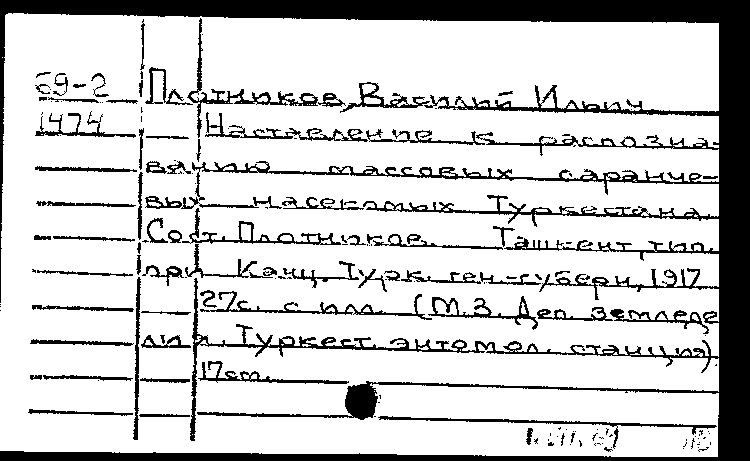 69-2 Плотников, Василий Ильич.
1474 Наставление к распозна-
ванию массовых саранче-
вых насекомых Туркестана.
Сост. Плотников. Ташкент, тип.
при Канц. Турк. ген.-губерн, 1917
27с. с илл. (М.З. Деп. Земледе
лия. Туркест. энтомол. станция)
17см.